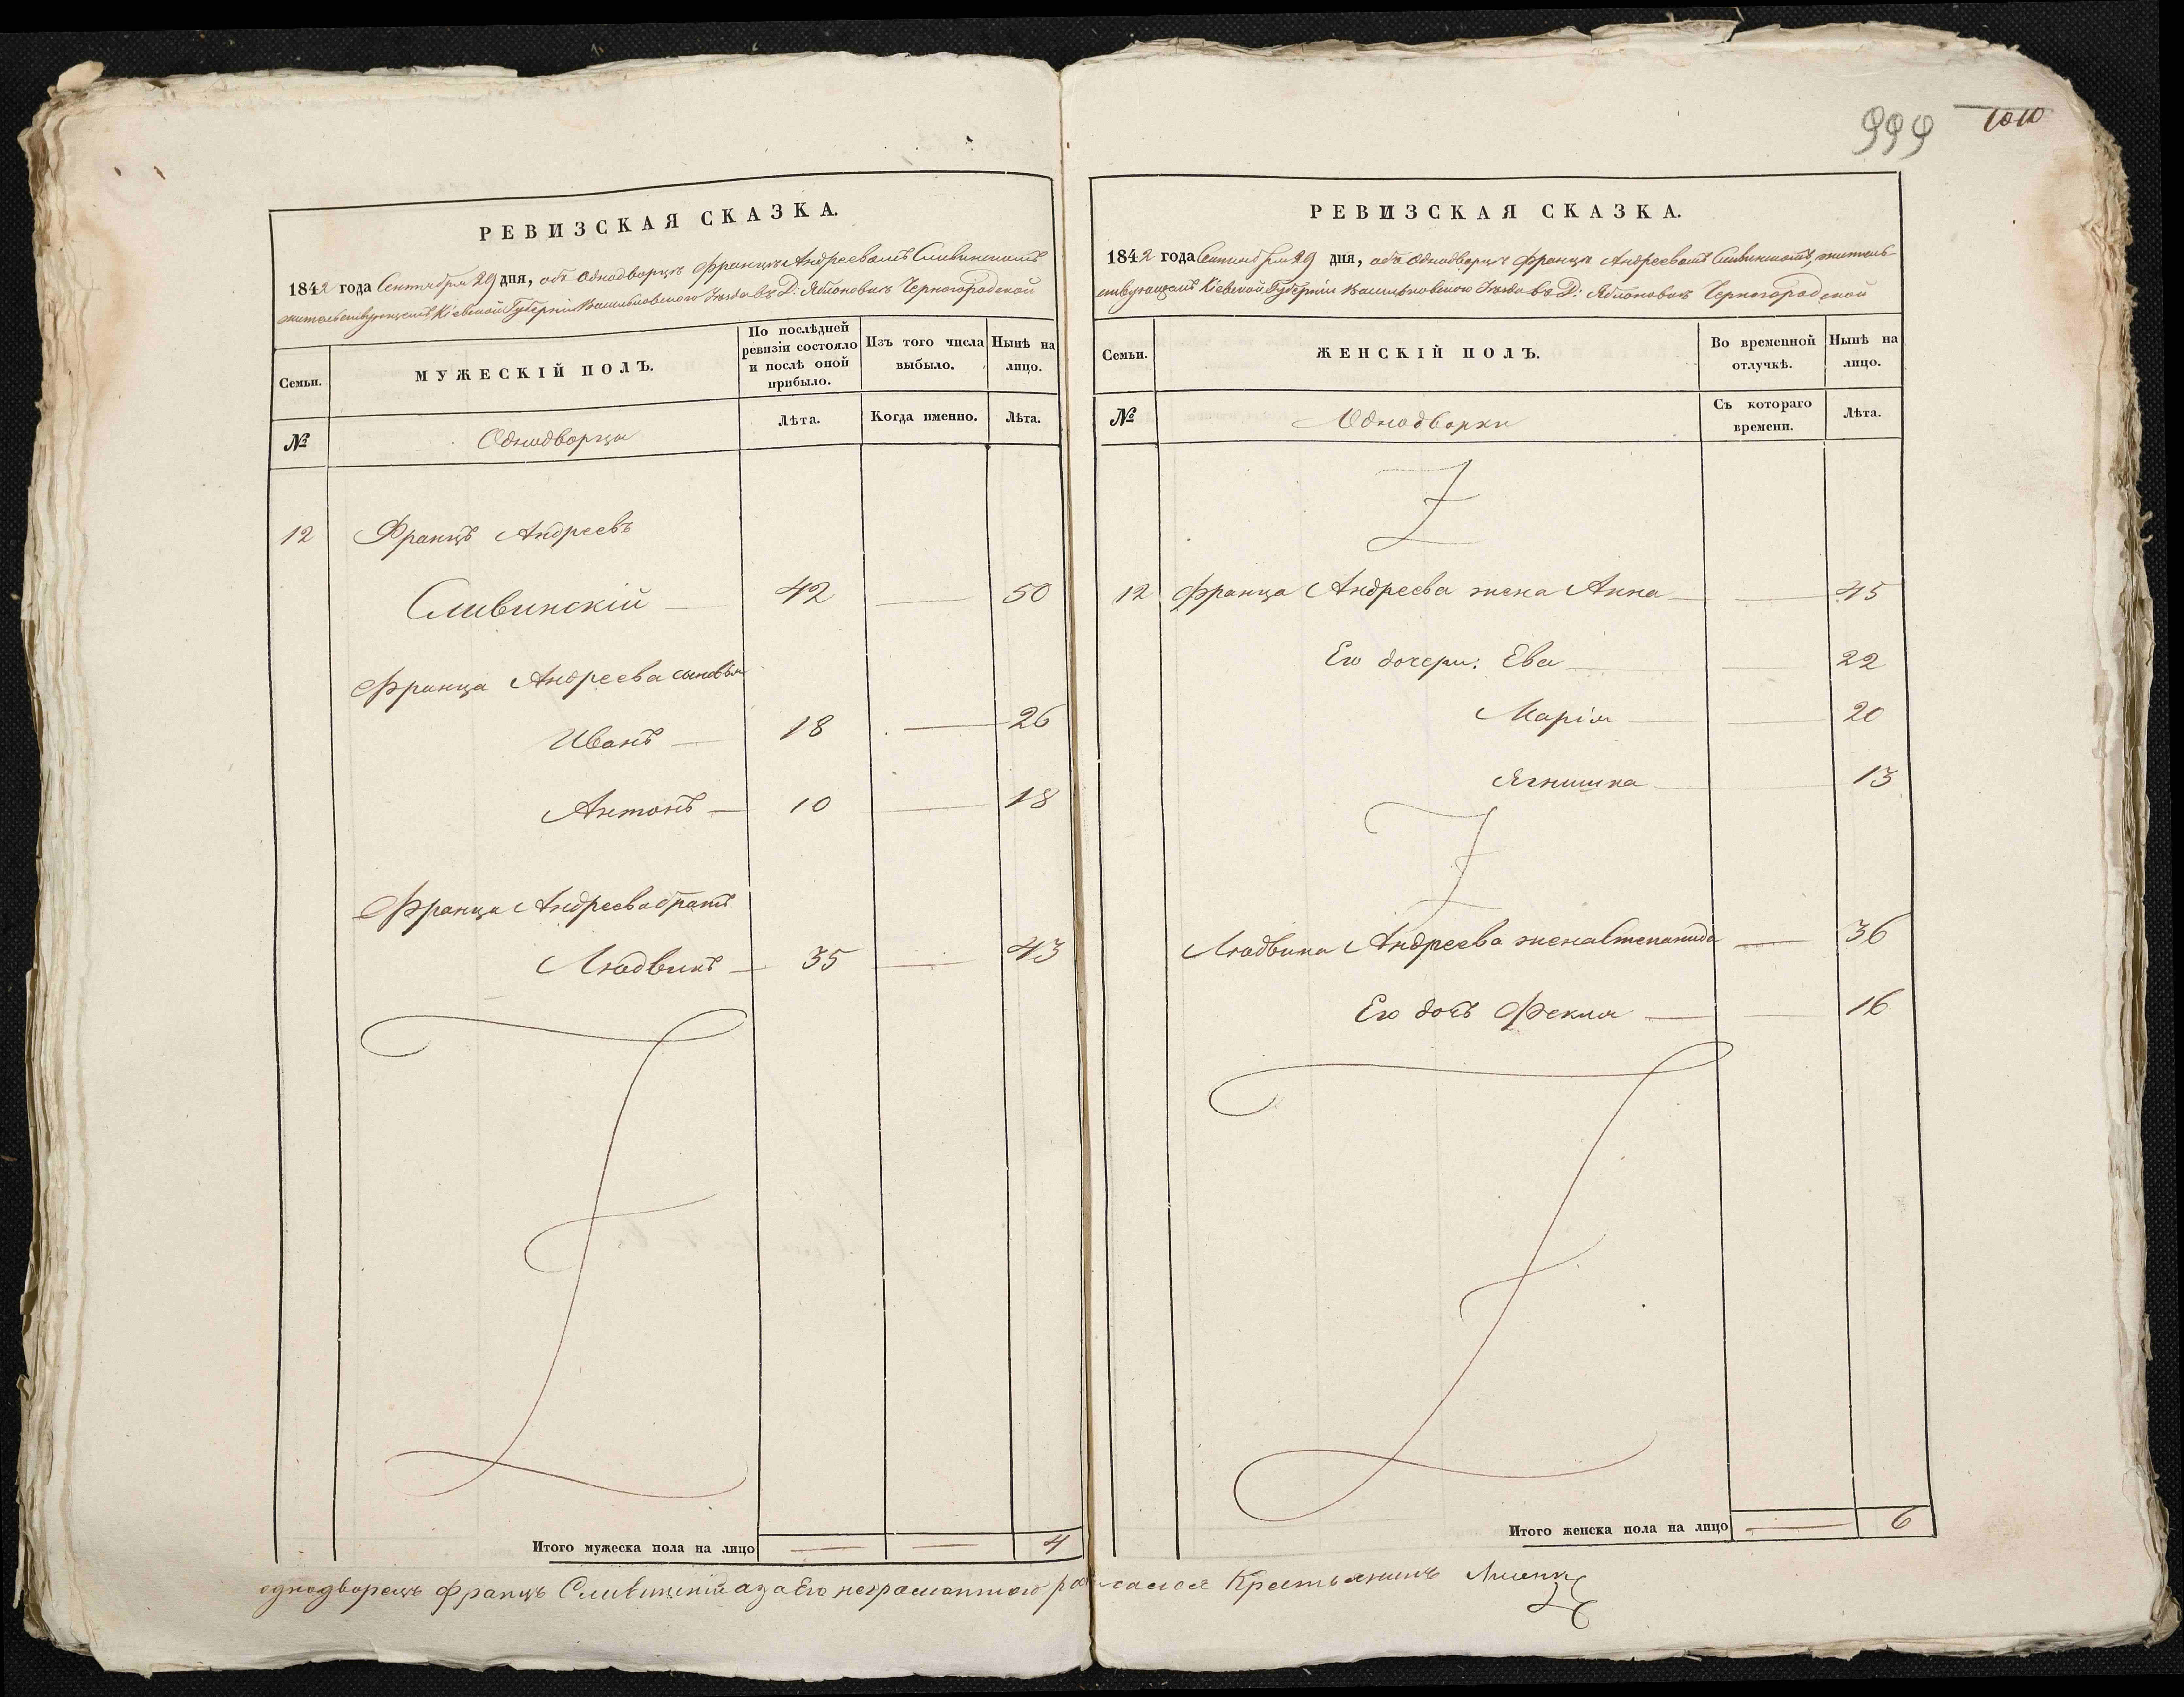 999 1010
РЕВИЗСКАЯ СКАЗКА.
1842 года Сентября 29 дня, объ Однодворцѣ Францѣ Андреевомъ Сливинскомъ
жительствующемъ Кіевской Губерніи Васильковскаго Уѣзда въ Д: Яблоновкѣ Черногородской
Семьи.
МУЖЕСКІЙ ПОЛЪ.
По послѣдней ревизіи состояло и послѣ оной прибыло.
Изъ того числа выбыло.
Нынѣ на лицо.
№
Однодворцы
Лѣта.
Когда именно.
Лѣта.
12 Францъ Андреевъ
Сливинскій — 42 — 50
Франца Андреева сыновья
Иванъ — 18 — 26
Антонъ — 10 — 18
Франца Андреева братъ
Людвикъ — 35 — 43
Итого мужеска пола на лицо — — 4
РЕВИЗСКАЯ СКАЗКА.
1842 года Сентября 29 дня, объ Однодворцѣ Францѣ Андреевомъ Сливинскомъ, житель-
ствующемъ Кіевской Губерніи Васильковскаго Уѣзда въ Д: Яблоновкѣ Черногородской
Семьи.
ЖЕНСКІЙ ПОЛЪ.
Во временной отлучкѣ.
Нынѣ на лицо.
№
Однодворки
Съ котораго времени.
Лѣта.
12 Франца Андреева жена Анна — — 45
Его дочери: Ева — — 22
Марія — — 20
Ягнишка — — 13
Людвика Андреева жена Степанида — 36
Его дочь Фекла — — 16
Итого женска пола на лицо — 6
однодворецъ Францъ Сливинскій а за Его неграмотного росписался Крестьянинъ